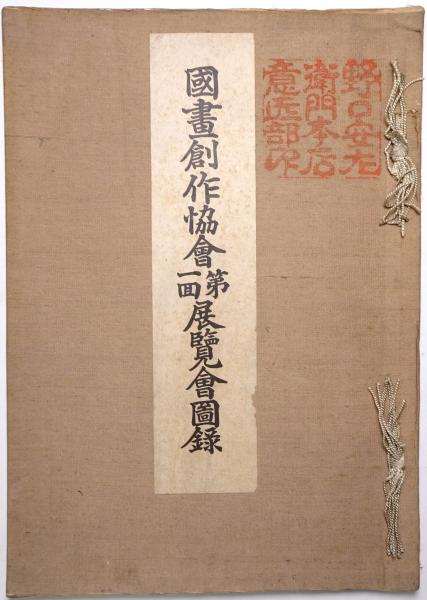 野口安左
衛門本店
意匠部印
國畫創作協會第一囬展覽會圖錄